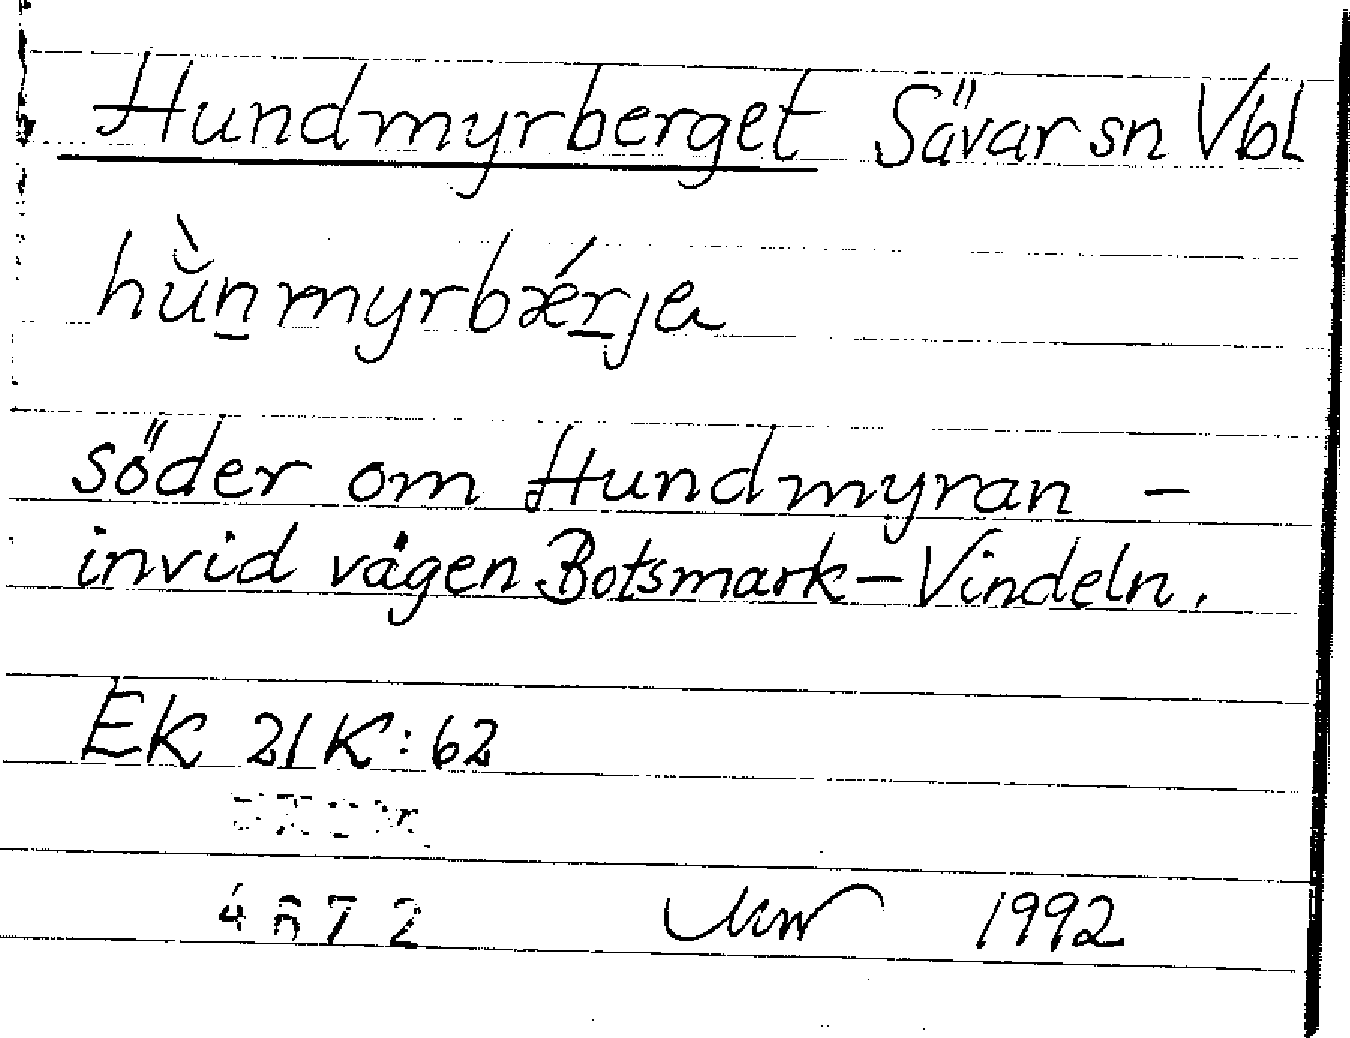 Hundmyrberget Sävar sn Vbl
hŭ̀n̲myrbǽr̲ja
söder om Hundmyran –
invid vägen Botsmark–Vindeln.
EK 21K:62
4672 1992